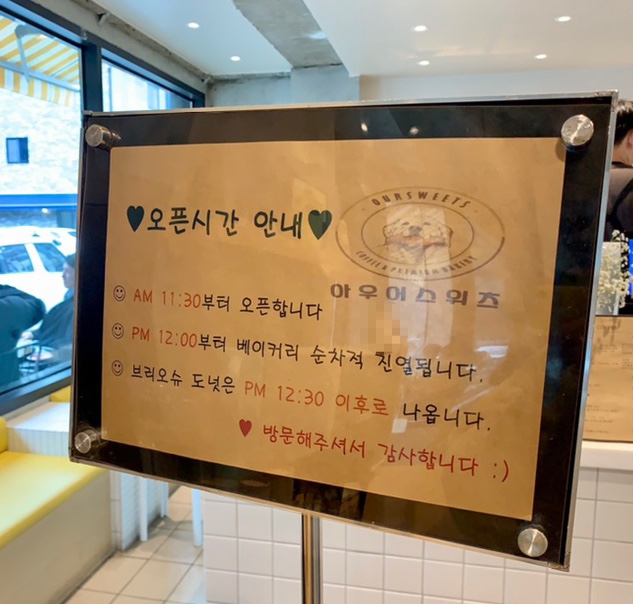 ♥오픈시간 안내♥
OURSWEETS
COFFEE & PREMIUM BAKERY
아우어스위츠
AM 11:30부터 오픈합니다
PM 12:00부터 베이커리 순차적 진열됩니다.
브리오슈 도넛은 PM 12:30 이후로 나옵니다.
♥ 방문해주셔서 감사합니다 :)